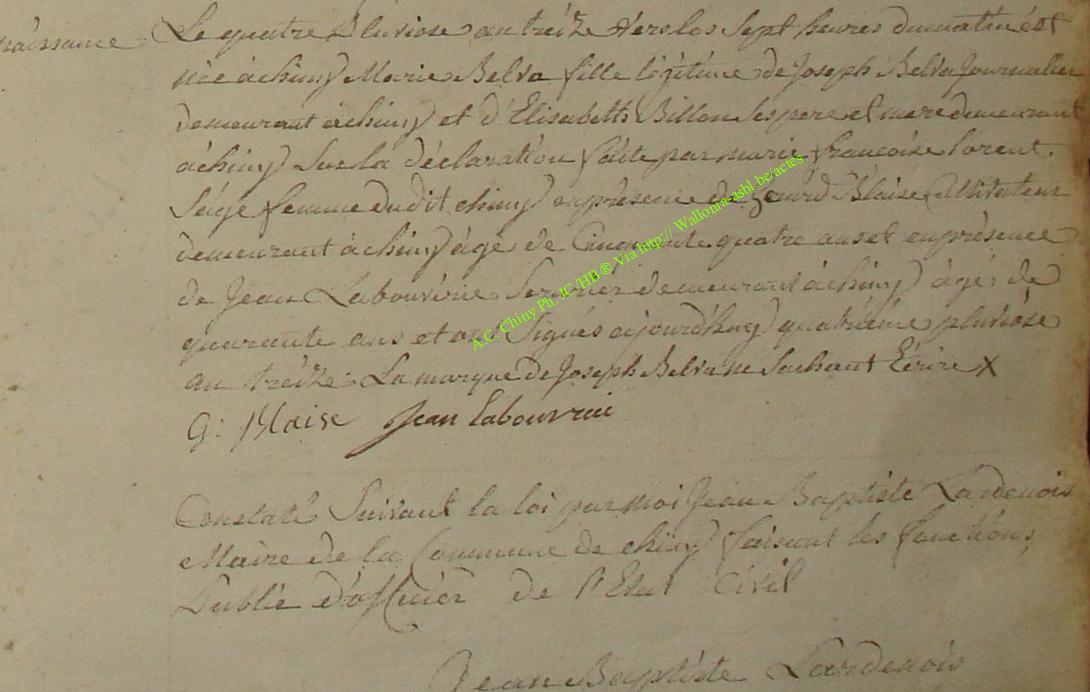 naissance Le quatre Pluviose an treize Vers les Sept heures du matin est
née à chiny Marie Belva fille légitime de Joseph Belva Journalier
demeurant à chiny et d'Elisabeth Billon Ses pere et mere demeurant
à chiny Sur la déclaration faite par marie francoise lorent
Sage femme dudit chiny en présence de Blaise
demeurant à chiny âgé de Cinquante quatre ans et en présence
de Jean Labouverie demeurant à chiny âgé de
quarante ans et ont Signés ajourdhuy quatrième pluviose
an treize La marque de Joseph Belva ne Sachant Ecrire X
G: Blaise Jean labouvrie
Constaté Suivant la loi par moi Jean Baptiste Lardenois
Maire de la Commune de chiny faisant les fonctions
Public d'officier de l'Etat Civil
Jean Baptiste Lardenois
A.C. Chiny Ph. JC/HB ® Via http:// Wallonia-asbl.be/actes